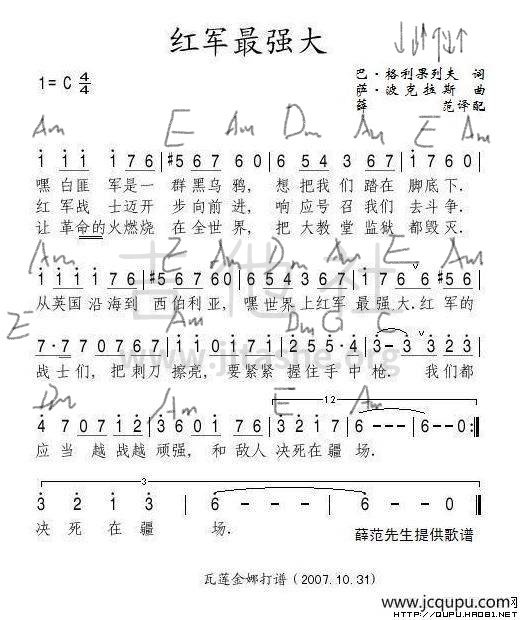 红军最强大
↓↓↑↑↓↑
1=C 4/4
巴·格利果列夫 词
萨·波克拉斯 曲
薛 范译配
Am E Am Dm Am E Am
1 1 1 1 7 6 | #5 6 7 6 0 | 6 5 4 3 6 7 | 1 7 6 6 0
嘿 白匪 军是一 群黑乌 鸦, 想 把我们 踏在 脚底下.
红 军战 士迈开 步向前 进, 响 应号 召我们 去斗争.
让 革命的火燃烧 在全世 界, 把 大教堂 监狱 都毁灭.
Am E Am Dm Am E Am
1 1 1 1 7 6 | #5 6 7 6 0 | 6 5 4 3 6 7 | 1 7 6 6 7 1
从英国 沿海到 西伯利亚, 嘿世界 上红军 最强大.红军的
E Am Dm G C
7·7 7 0 7 6 7 | 1·7 6 0 | 2 2 2 5·5 4 | 3-3 3 2 3
战士们, 把刺刀 擦亮, 要紧紧 握住手 中枪. 我们都
Dm Am E Am
4 7 0 7 1 2 | 3 6 0 1 3 | 3 2 1 7 | 6 - - - | 6 - - 0 :‖
12
应 当 越战越 顽强, 和 敌人 决死在 疆 场.
3
3 2 1 3 | 6 - - - | 6 - - 0 ‖
决 死 在 疆 场.
薛范先生提供歌谱
瓦莲金娜打谱(2007.10.31)
吉他社
www.jitashe.org
www.jcqupu.com
http://QUPU.HAO81.NET